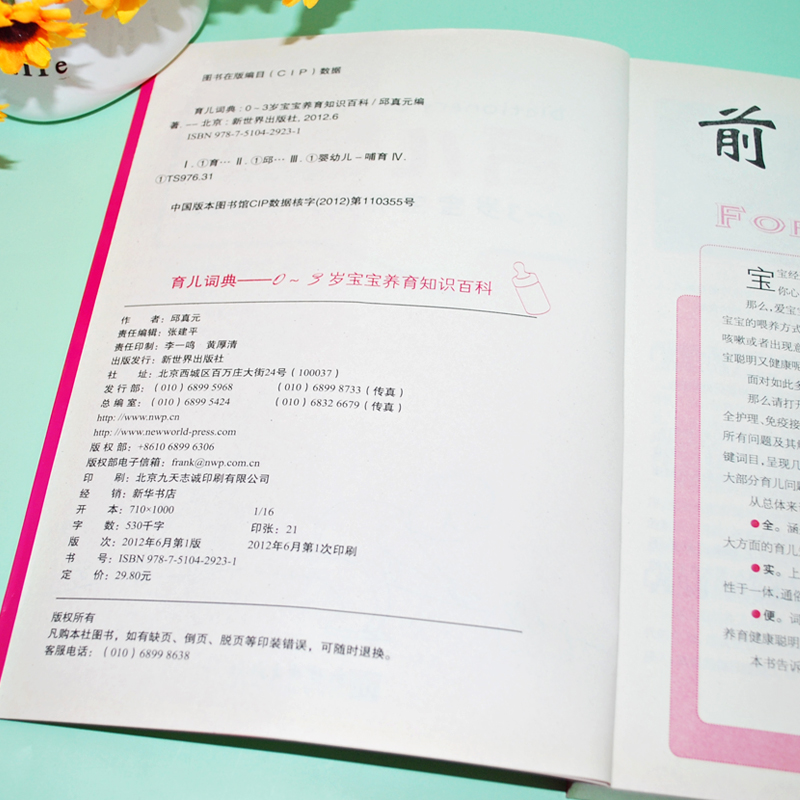 图书在版编目(CIP)数据
育儿词典:0~3岁宝宝养育知识百科/邱真元编
著.—北京:新世界出版社,2012.6
ISBN 978-7-5104-2923-1
Ⅰ.①育… Ⅱ.①邱… Ⅲ.①婴幼儿-哺育 Ⅳ.
①TS976.31
中国版本图书馆CIP数据核字(2012)第110355号
育儿词典——0~3岁宝宝养育知识百科
作 者:邱真元
责任编辑:张建平
责任印制:李一鸣 黄厚清
出版发行:新世界出版社
社 址:北京西城区百万庄大街24号(100037)
发 行 部:(010)6899 5968 (010)6899 8733(传真)
总 编 室:(010)6899 5424 (010)6832 6679(传真)
http://www.nwp.cn
http://www.newworld-press.com
版 权 部:+8610 6899 6306
版权部电子信箱:frank@nwp.com.cn
印 刷:北京九天志诚印刷有限公司
经 销:新华书店
开 本:710×1000 1/16
字 数:530千字 印张:21
版 次:2012年6月第1版 2012年6月第1次印刷
书 号:ISBN 978-7-5104-2923-1
定 价:29.80元
版权所有
凡购本社图书,如有缺页、倒页、脱页等印装错误,可随时退换。
客服电话:(010)6899 8638
前
For
宝宝经
你心
那么,爱宝宝
宝宝的喂养方式
咳嗽或者出现意
宝聪明又健康呢
面对如此多
那么请打开
全护理、免疫接
所有问题及其解
键词目,呈现几
大部分育儿问题
从总体来
●全。涵
大方面的育儿
●实。上
性于一体,通俗
●便。词
养育健康聪明
本书告诉